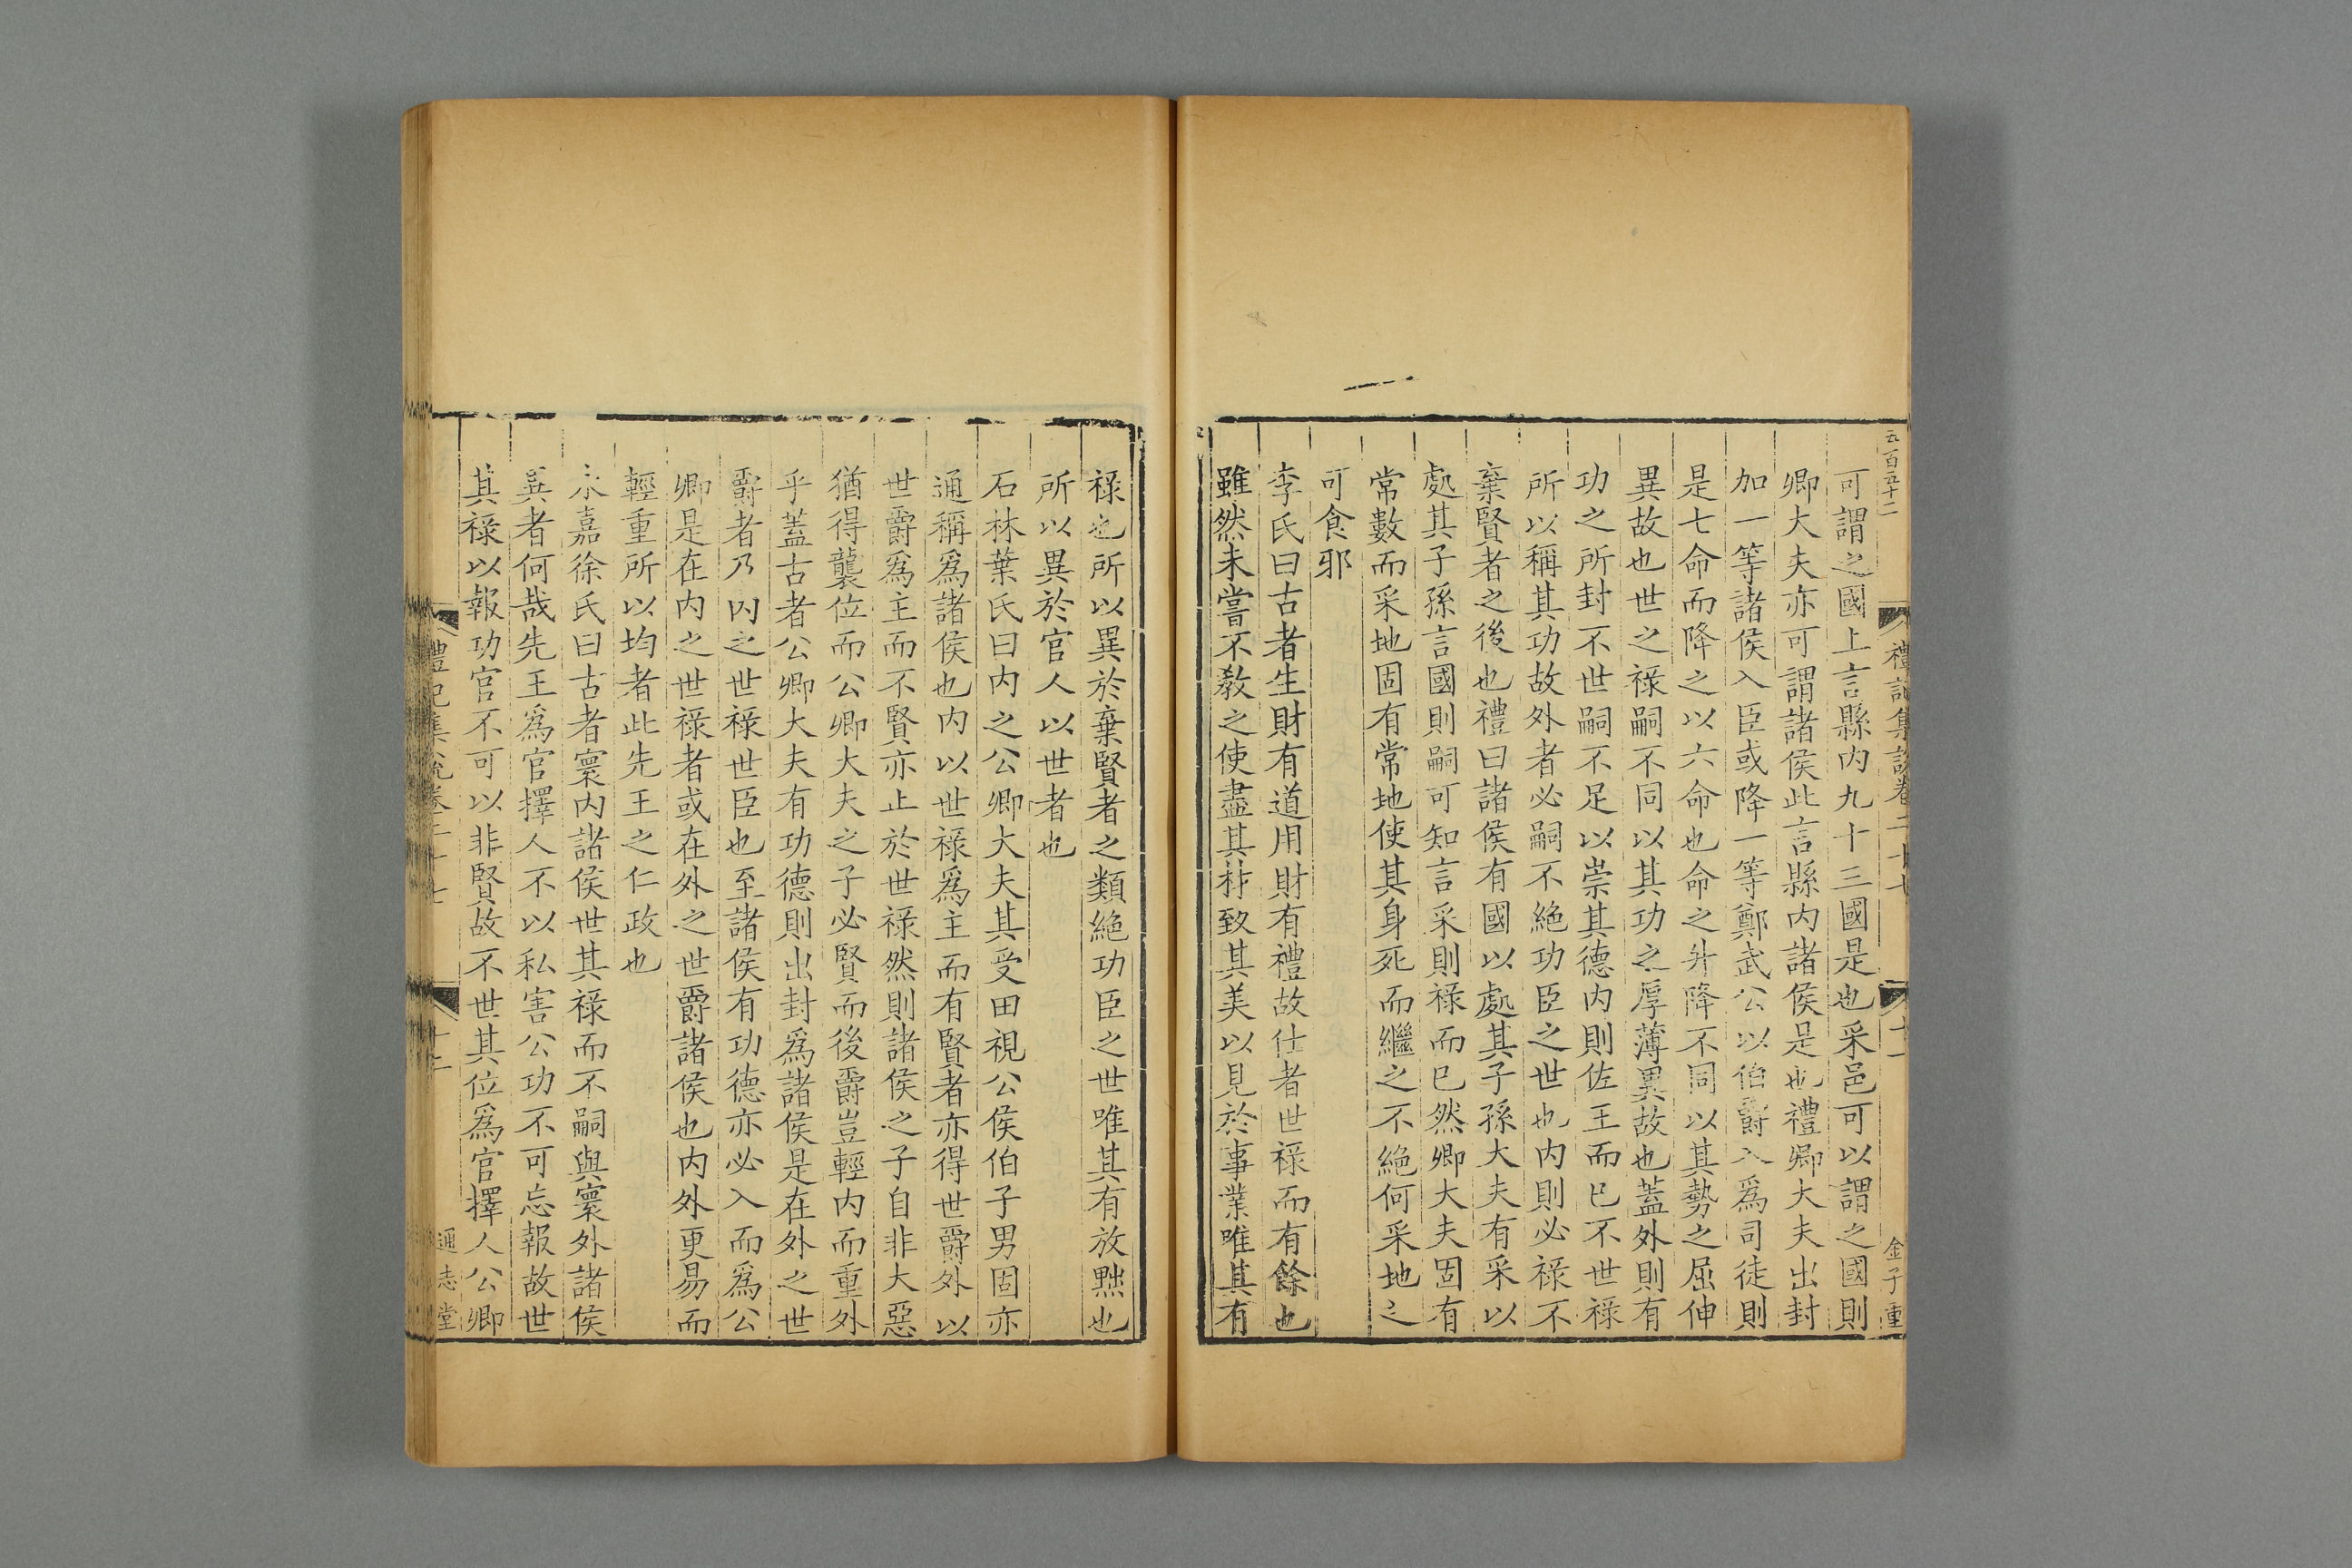 五百五十二
禮記集説卷二十七
十一
金子重
可謂之國上言縣内九十三國是也采邑可以謂之國則
卿大夫亦可謂諸侯此言縣内諸侯是也禮卿大夫出封
加一等諸侯入臣或降一等鄭武公以伯爵入爲司徒則
是七命而降之以六命也命之升降不同以其勢之屈伸
異故也世之禄嗣不同以其功之厚薄異故也蓋外則有
功之所封不世嗣不足以崇其德内則佐王而已不世禄
所以稱其功故外者必嗣不絶功臣之世也内則必禄不
棄賢者之後也禮曰諸侯有國以處其子孫大夫有采以
處其子孫言國則嗣可知言采則禄而已然卿大夫固有
常數而采地固有常地使其身死而繼之不絶何采地之
可食邪
李氏曰古者生財有道用財有禮故仕者世禄而有餘也
雖然未嘗不教之使盡其材致其美以見於事業唯其有
禄也所以異於棄賢者之類絶功臣之世唯其有放黜也
所以異於官人以世者也
石林葉氏曰内之公卿大夫其受田視公侯伯子男固亦
通稱爲諸侯也内以世禄爲主而有賢者亦得世爵外以
世爵爲主而不賢亦止於世禄然則諸侯之子自非大惡
猶得襲位而公卿大夫之子必賢而後爵豈輕内而重外
乎蓋古者公卿大夫有功德則出封爲諸侯是在外之世
爵者乃内之世禄世臣也至諸侯有功德亦必入而爲公
卿是在内之世禄者或在外之世爵諸侯也内外更易而
輕重所以均者此先王之仁政也
永嘉徐氏曰古者寰内諸侯世其禄而不嗣與寰外諸侯
異者何哉先王爲官擇人不以私害公功不可忘報故世
其禄以報功官不可以非賢故不世其位爲官擇人公卿
禮記集説卷二十七
十二
通志堂